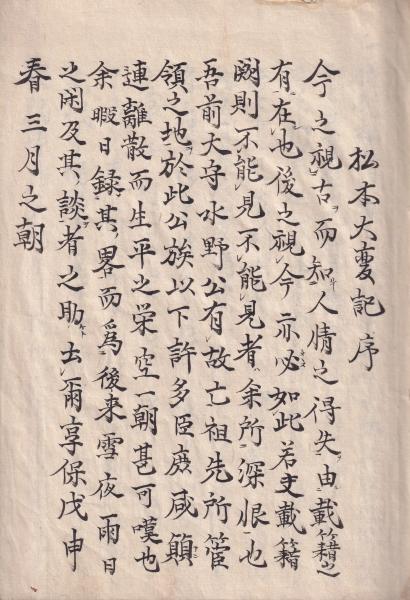 松本大変記序
今之視古而知人情之得失由載籍之
有在也後之視今亦必如此若夫載籍
闕則不能見不能見者余所深恨也
吾前大守水野公有故亡祖先所管
領之地於此公族以下許多臣庶咸顛
連離散而生平之栄空一朝甚可嘆也
余暇日録其畧而為後来雪夜雨日
之閑及其談者之助云爾享保戊申
春三月之朝